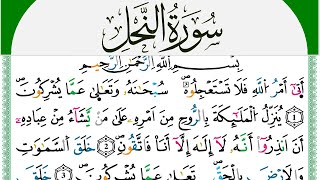 سورة النحل
بِسْمِ اللّٰهِ الرَّحْمٰنِ الرَّحِيْمِ
اَتٰۤى اَمْرُ اللّٰهِ فَلَا تَسْتَعْجِلُوْهُ ؕ سُبْحٰنَهٗ وَتَعٰلٰى عَمَّا يُشْرِكُوْنَ
﴿١﴾ يُنَزِّلُ الْمَلٰٓئِكَةَ بِالرُّوْحِ مِنْ اَمْرِهٖ عَلٰى مَنْ يَّشَآءُ مِنْ عِبَادِهٖۤ
اَنْ اَنْذِرُوْۤا اَنَّهٗ لَاۤ اِلٰهَ اِلَّاۤ اَنَا فَاتَّقُوْنِ ﴿٢﴾ خَلَقَ السَّمٰوٰتِ
وَالْاَرْضَ بِالْحَقِّ ؕ تَعٰلٰى عَمَّا يُشْرِكُوْنَ ﴿٣﴾ خَلَقَ